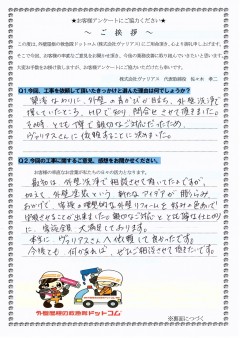 ★お客様アンケートにご協力ください★
～ご挨拶～
この度は、外壁塗装の救急隊ドットコム（株式会社ヴァリアス）にご用命頂き、心より御礼申し上げます。
そこで今回、お客様の率直なご意見をお聞かせ頂き、今後の業務改善に役立てていきたいと思います。
大変お手数をお掛け致しますが、お客様アンケートにご協力いただけたら幸いです。
株式会社ヴァリアス　代表取締役　佐々木　孝二
Q1.今回、工事を依頼して頂いたきっかけと選んだ理由は何でしょうか？
築年なりに、外壁の
外壁洗浄で
探していたところ、HPで知り問合せさせて頂きました。
その時、とても丁寧で親切なご対応だったため、
ヴァリアスさんに依頼することに決めました。
Q2.今回の工事に関するご意見、感想をお聞かせください。
お客様の貴重なお言葉が私たちの日々の活力となります。
最初は、外壁洗浄で相談させて頂いてたのですが、
外壁塗装という新たなアイデアが膨らみ
おかげで、家族の理想的な外壁リフォームを好みの色あいで
実現させることが出来ました。親切なご対応ととても綺麗な仕上がりに、
家族全員、大満足しております。
本当に、ヴァリアスさんへ依頼して良かったです。
今後とも何かあれば、ぜひご相談させて頂きたいです。
外壁塗装の救急隊ドットコム
※裏面につづく